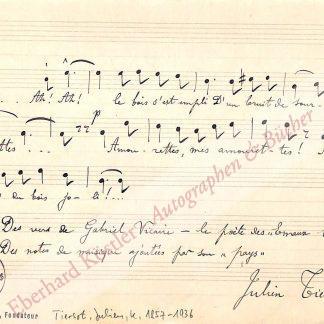 .. Ah! Ah! le bois s'est empli D'un bruit de sour-
ttes ... Amou - rettes, mes amouret-tes! A
du bois jo - li! ...
Des vers de Gabriel Vicaire - le poète des "Émaux
Des notes de musique ajoutées par son "pays"
Julien Tie
Eberhard Köstler Autographen & Bücher
Fondateur
Tiersot, Julien, 1857-1936